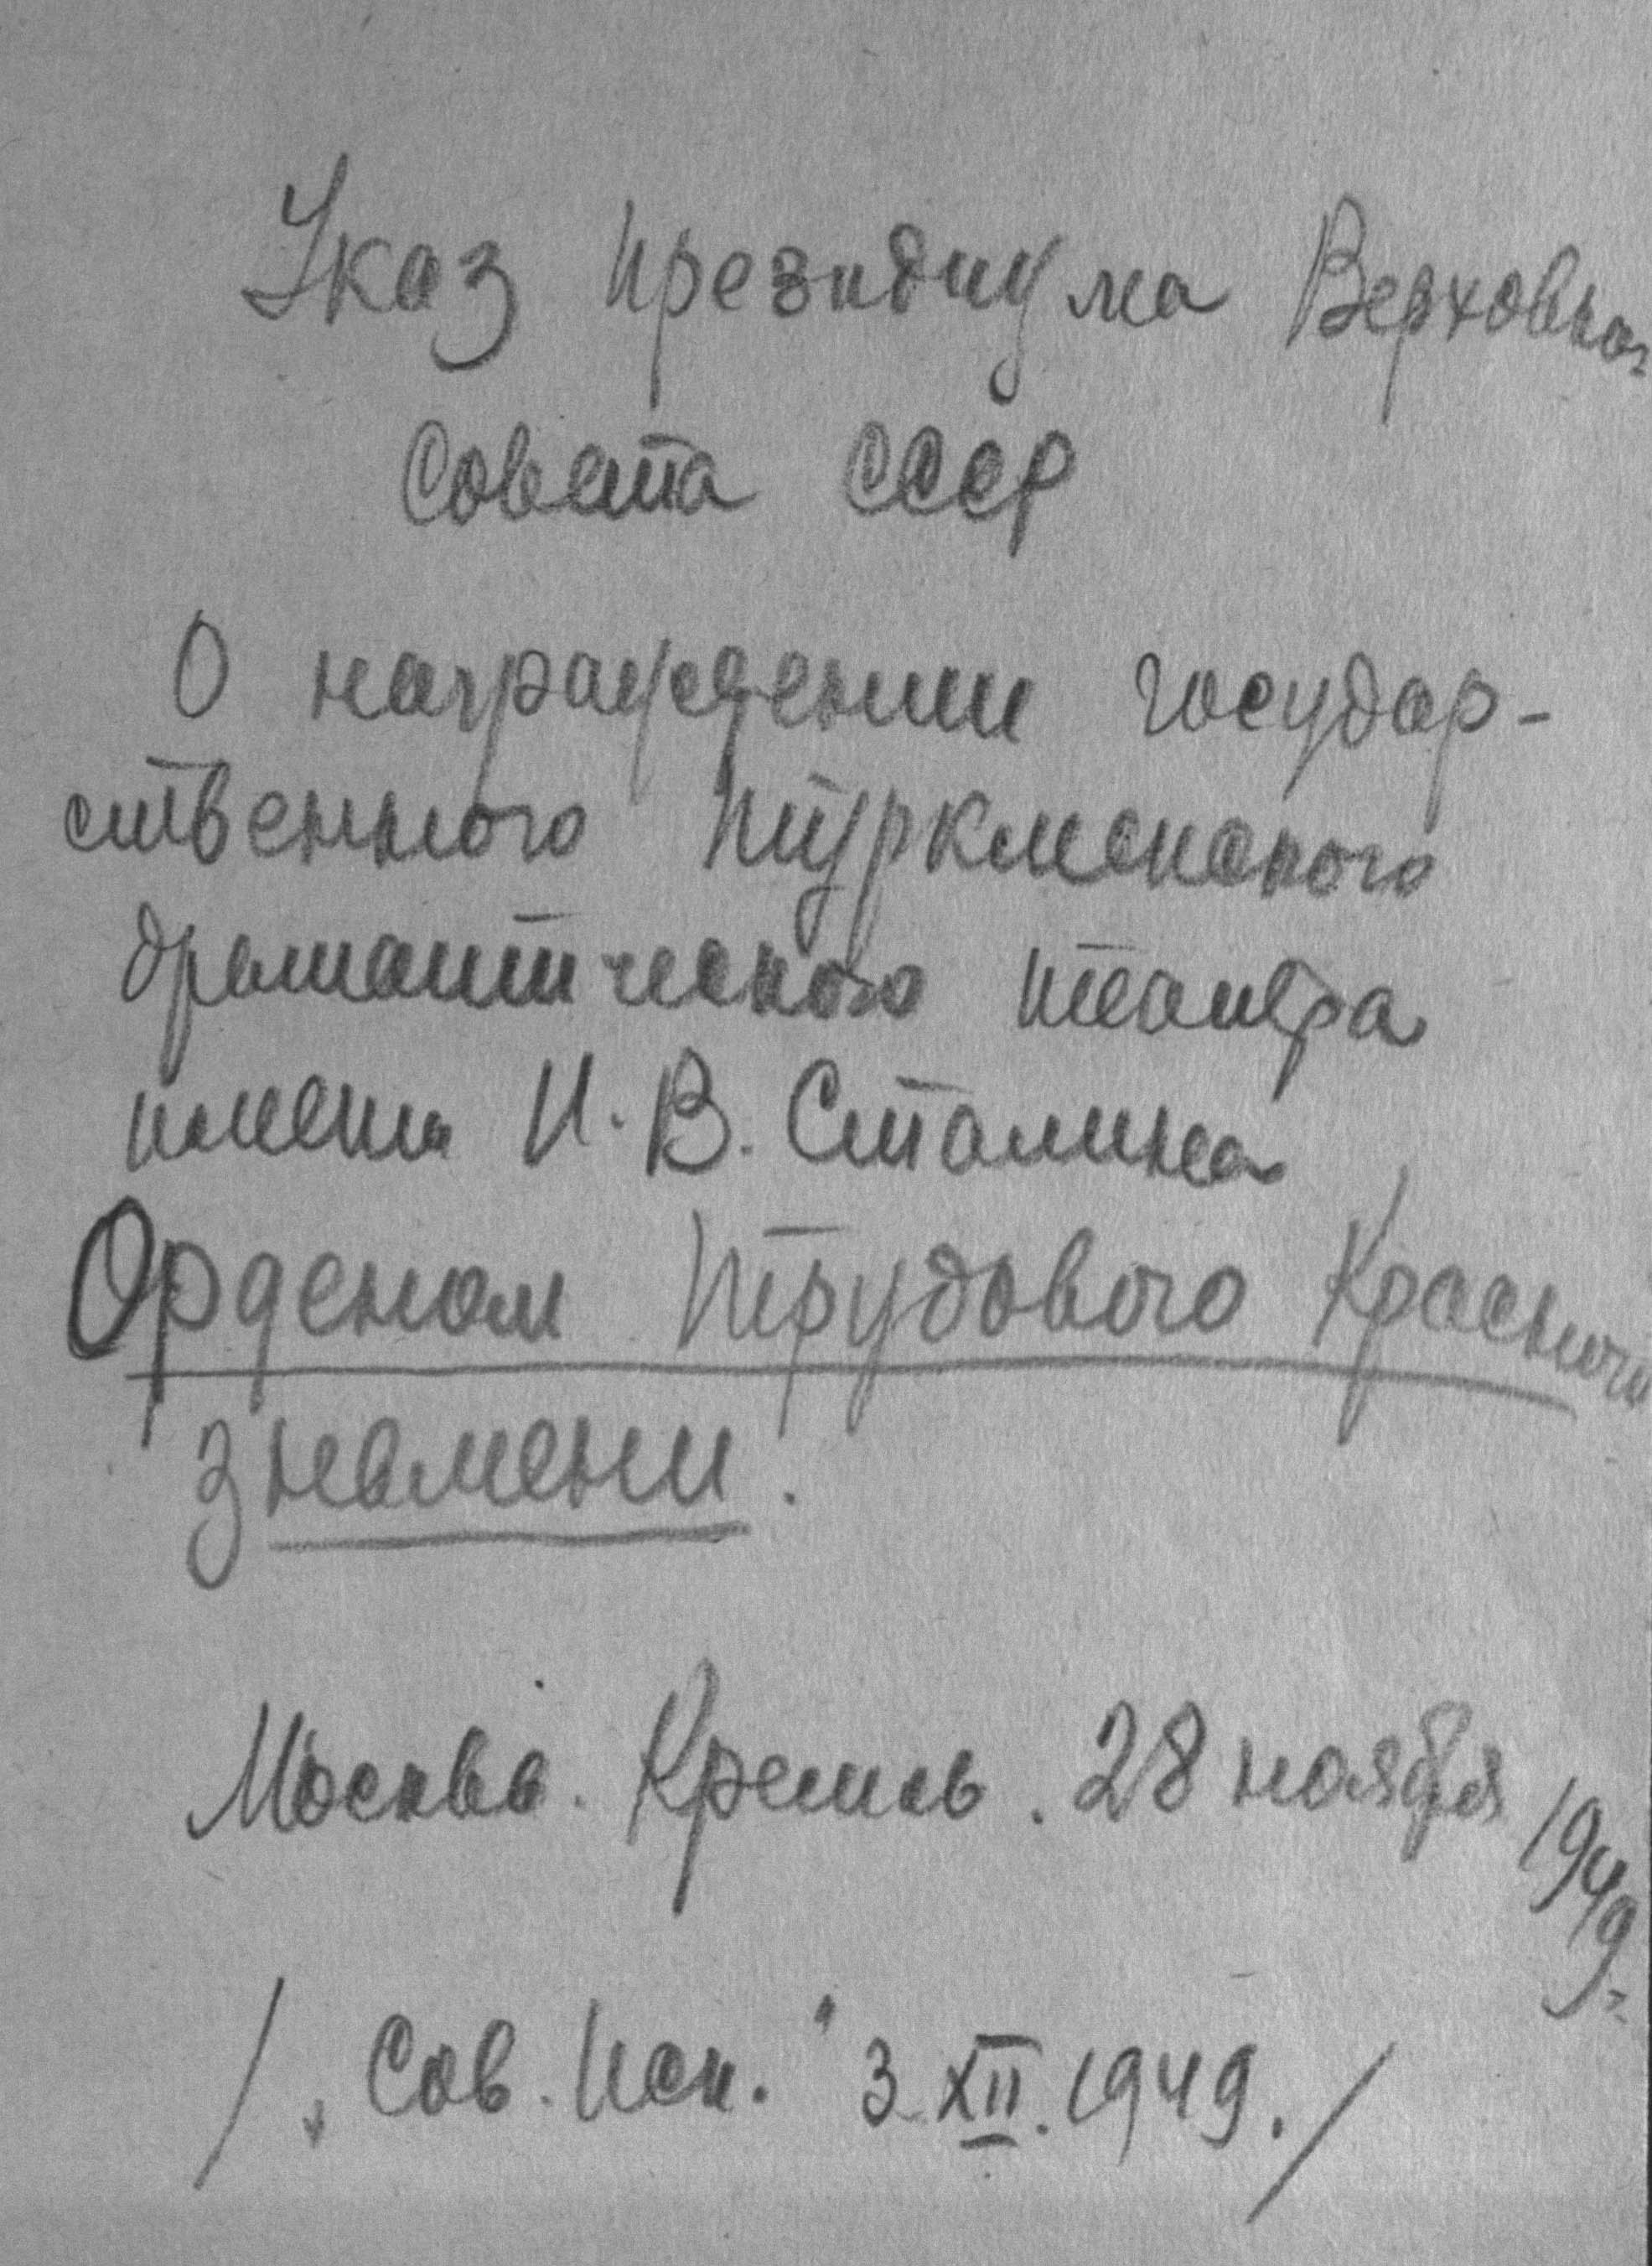 Указ президиума Верховного
Совета СССР
О награждении государ-
ственного туркменского
драматического театра
имени И. В. Сталина
Орденом трудового Красного
знамени.
Москва. Кремль. 28 ноября 1949г.
/„Сов. Иск." 3 XII. 1949./